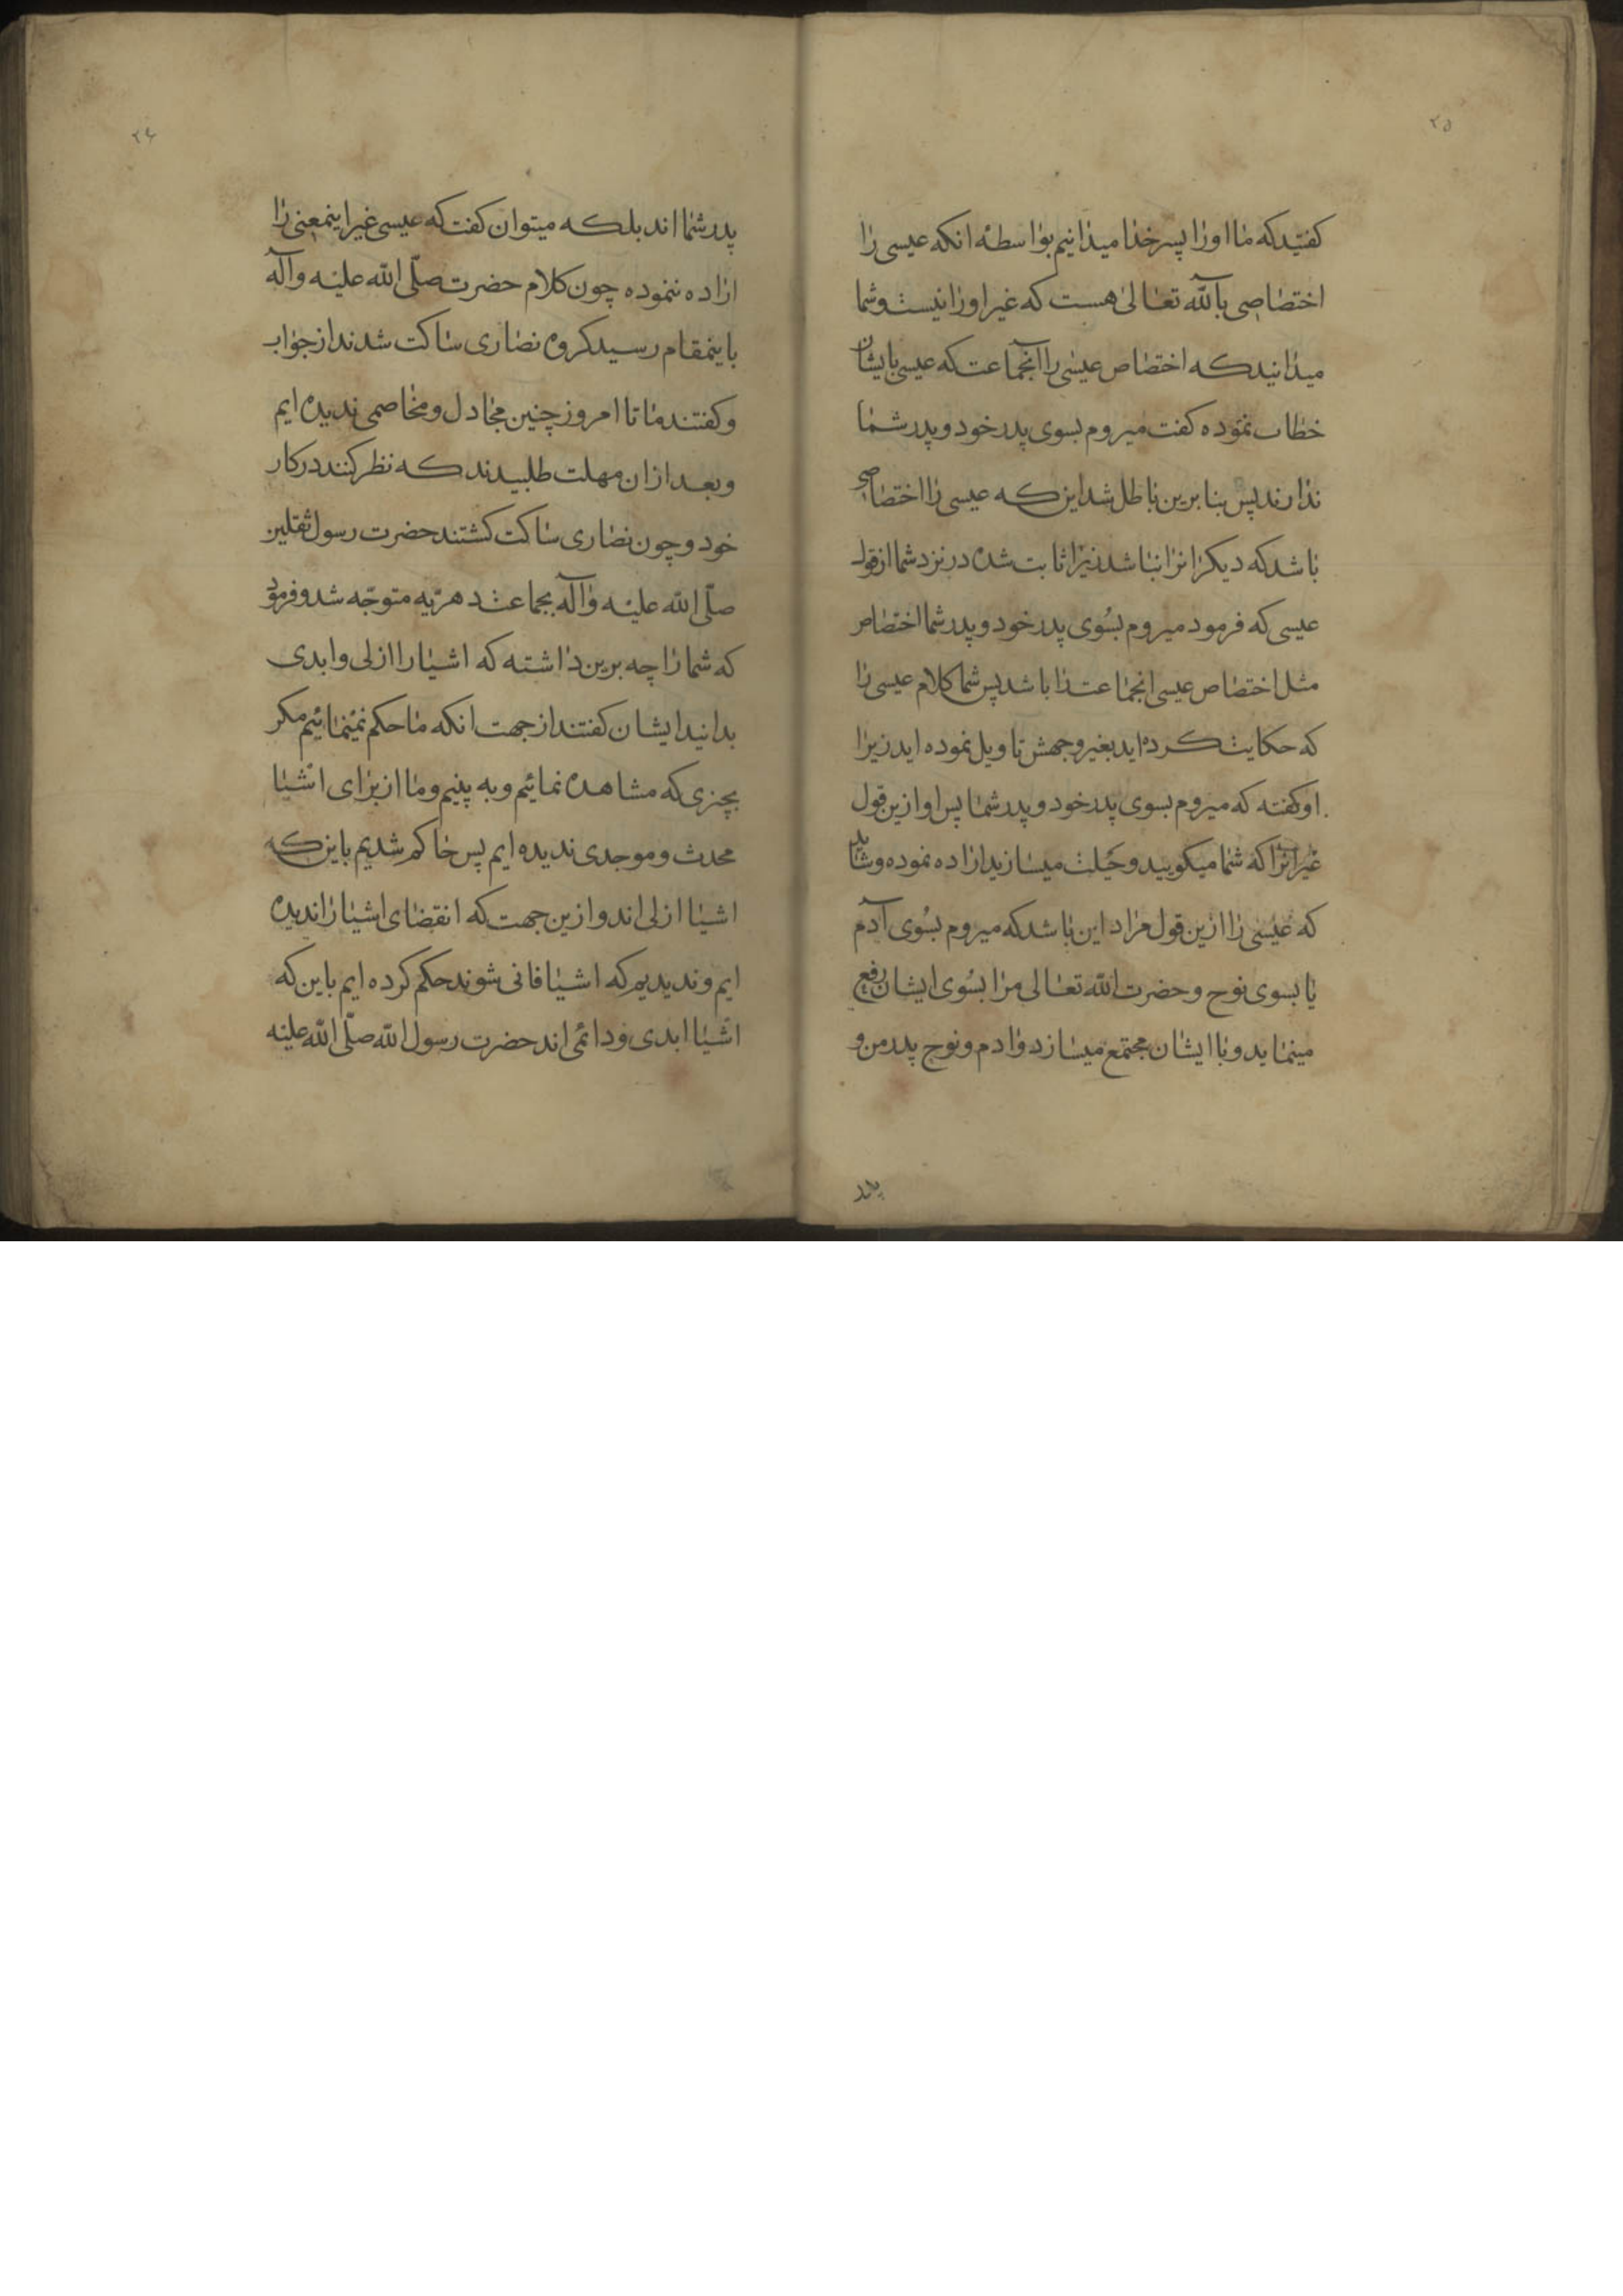 ۲۵
کفتید که ما اورا پسر خدا میدانیم بواسطهٔ انکه عیسی را
اختصاصی بالله تعالی هست که غیر اورا نیست و شما
میدانید که اختصاص عیسی را آنجماعت که عیسی بایشان
خطاب نموده کفت میروم بسوی پدر خود و پدر شما
ندارند پس بنا برین باطل شد این که عیسی را اختصاصی
باشد که دیکرانرا نباشد زیرا ثابت شده در نزد شما از قول
عیسی که فرمود میروم بسُوی پدر خود و پدر شما اختصاص
مثل اختصاص عیسی انجماعت را باشد پس شما کلام عیسی را
که حکایت کرده اید بغیر وجهش تاویل نموده اید زیرا
او کفته که میروم بسوی پدر خود و پدر شما پس او ازین قول
غیر انرا که شما میکویید و حیلت میسازید اراده نموده و شاید
که عیسی را ازین قول مراد این باشد که میروم بسُوی آدم
یا بسوی نوح و حضرت الله تعالی مرا بسُوی ایشان رفع
مینماید و با ایشان مجتمع میسازد و ادم و نوح پدر من و
پدر
۲۶
پدر شما اند بلکه میتوان کفت که عیسی غیر اینمعنی را
اراده ننموده چون کلام حضرت صلّی الله علیه وآله
باینمقام رسید کروه نصاری ساکت شدند از جواب
و کفتند ما تا امروز چنین مجادل و مخاصمی ندیده ایم
و بعد ازان مهلت طلبیدند که نظر کنند در کار
خود و چون نصاری ساکت کشتند حضرت رسول ثقلین
صلّی الله علیه وآله بجماعت دهریّه متوجّه شد و فرمود
که شما را چه برین داشته که اشیا را ازلی و ابدی
بدانید ایشان کفتند از جهت انکه ما حکم نمینمائیم مکر
بچیزی که مشاهده نمائیم و به بینیم و ما از برای اشیا
محدث و موجدی ندیده ایم پس حاکم شدیم باین که
اشیا ازلی اند و ازین جهت که انقضای اشیا را ندیده
ایم و ندیدیم که اشیا فانی شوند حکم کرده ایم باین که
اشیا ابدی و دائمی اند حضرت رسول الله صلّی الله علیه